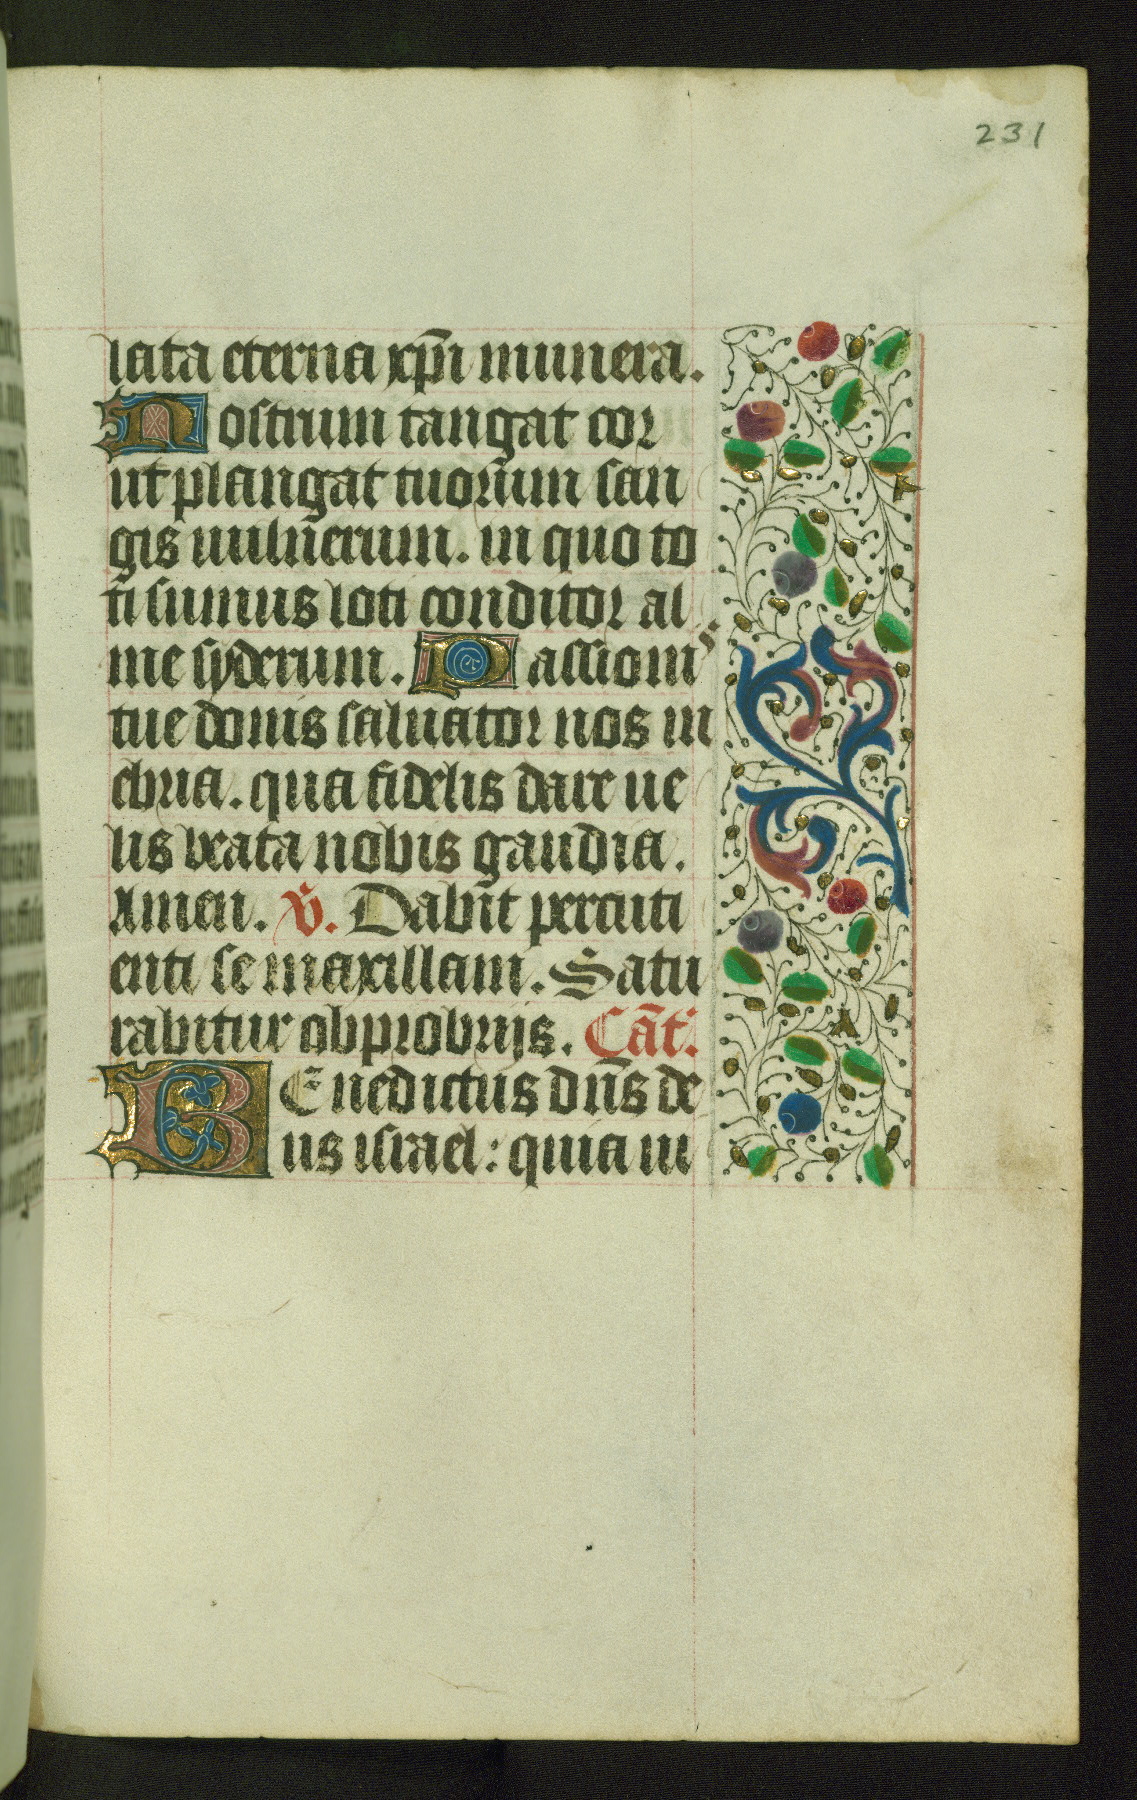 231
lata eterna xp̄i munera.
Nostrum tangat cor
ut plangat tuorum san
gis uulnerum. in quo to
ti sumus loti conditor al
me syderum. Passioni
tue donis saluator nos in
ebria. qua fidelis dare ue
lis beata nobis gaudia.
Amen. v̄. Dabit percuti
enti se maxillam. Satu
rabitur obprobrijs. Cāt.
Benedictus dn̄s de
us israel: quia ui